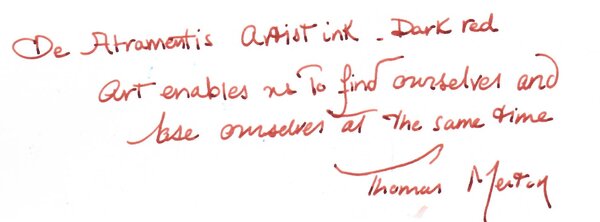 De Atramentis Artist ink - Dark red
Art enables us To find ourselves and
lose ourselves at the same time
Thomas Merton